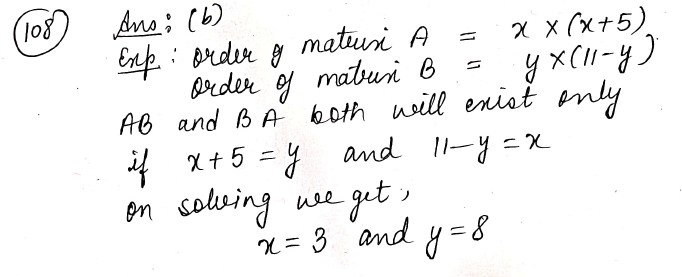 108 Ans : (b)
Exp : order of matrix A = x × (x+5)
order of matrix B = y × (11-y)
AB and BA both will exist only
if x+5 = y and 11-y = x
on solving we get,
x = 3 and y = 8